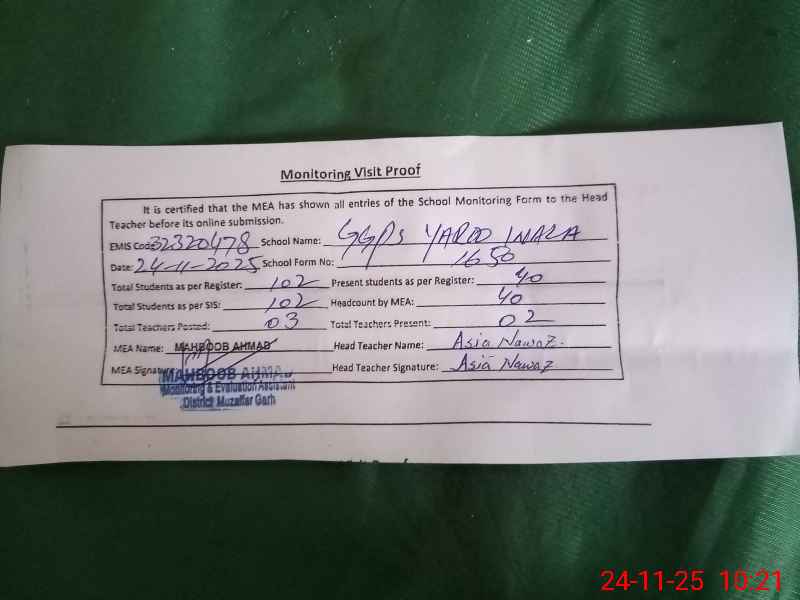 Monitoring Visit Proof
It is certified that the MEA has shown all entries of the School Monitoring Form to the Head
Teacher before its online submission.
EMIS Code: 32320478 School Name: GGPS YAROO WALA
Date: 24-11-2025 School Form No: 1650
Total Students as per Register: 102 Present students as per Register: 40
Total Students as per SIS: 102 Headcount by MEA: 40
Total Teachers Posted: 03 Total Teachers Present: 02
MEA Name: MAHBOOB AHMAD Head Teacher Name: Asia Nawaz.
MEA Signature Head Teacher Signature: Asia Nawaz
MAHBOOB AHMAD
Monitoring & Evaluation Assistant
District Muzaffar Garh
24-11-25 10:21